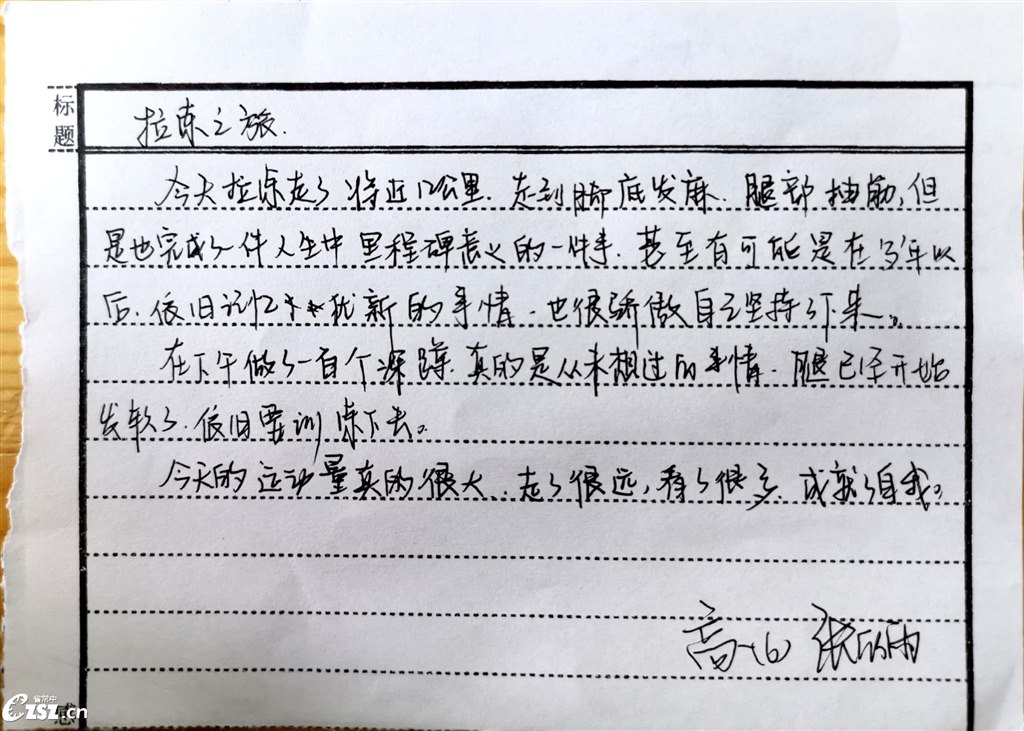 标题
拉练之旅.
今天拉练走了将近12公里.走到脚底发麻.腿部抽筋,但
是也完成了一件人生中里程碑意义的一件事.甚至有可能是在多年以
后.依旧记忆犹新的事情.也很骄傲自己坚持了下来。
在下午做了一百个深蹲.真的是从未想过的事情.腿已经开始
发软了.依旧要训练下去。
今天的运动量真的很大.走了很远,看了很多.成就了自我。
高一(6) 张雨
感
省常中
CZSZ.cn